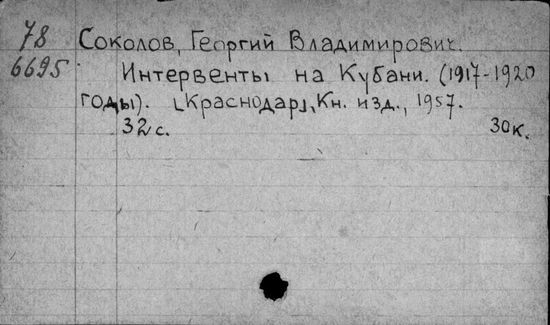 78 Соколов, Георгий Владимирович.
6695 Интервенты на Кубани. (1917-1920
годы). [Краснодар], Кн. изд., 1957.
32с. 30к.